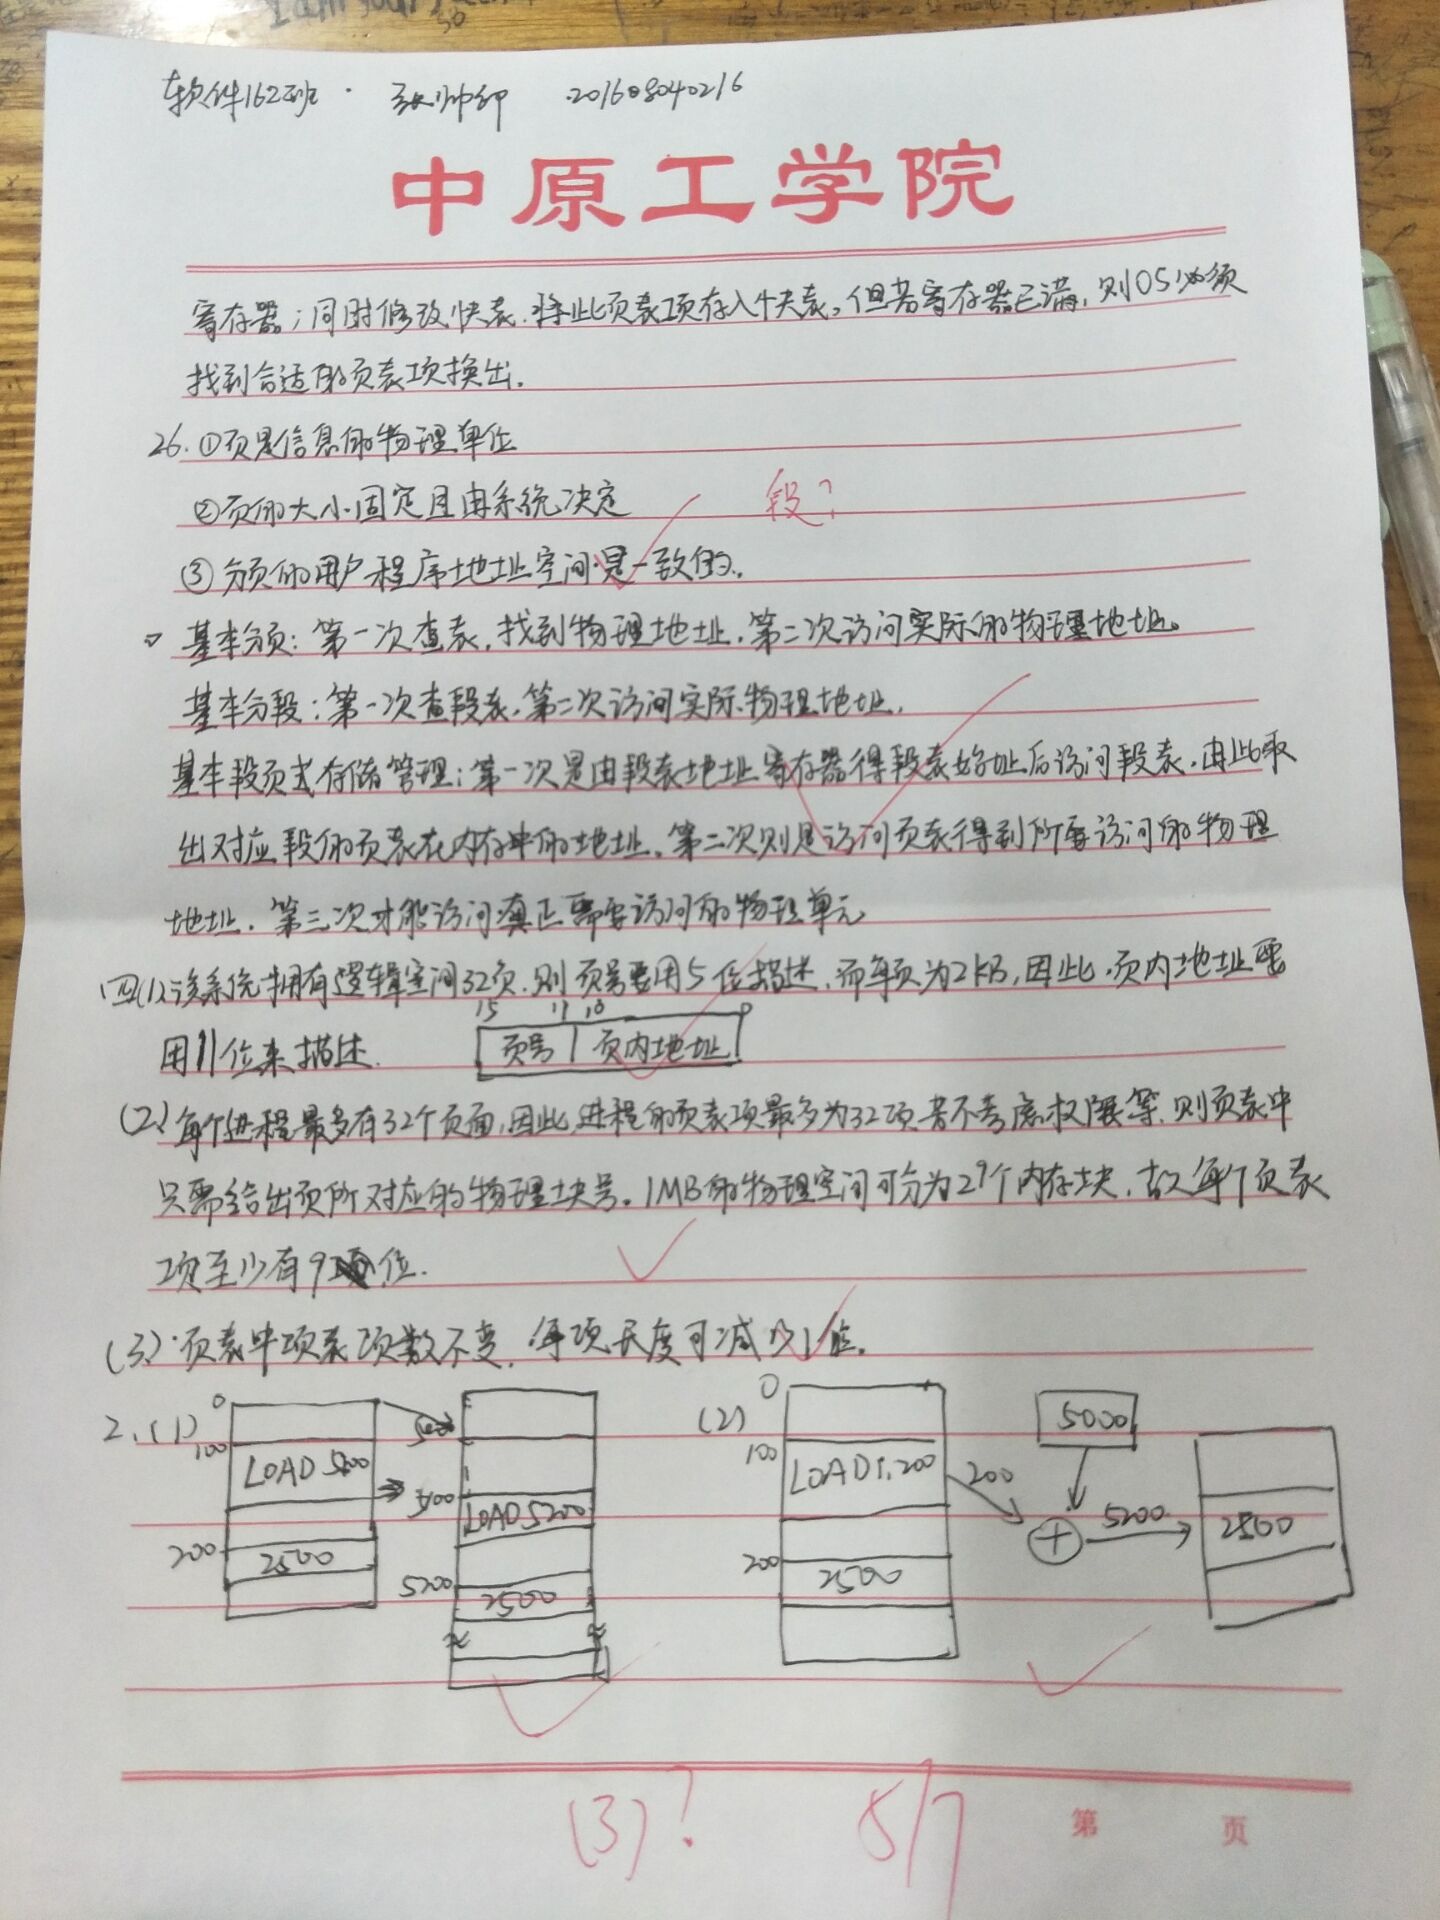 软件162班 · 201608040216
中原工学院
寄存器；同时修改快表.将此页表项存入快表。但若寄存器已满，则OS必须
找到合适的页表项换出.
26.①页是信息的物理单位
②页的大小固定且由系统决定
段？
③分页的用户程序地址空间是一致的.
基本分页：第一次查表，找到物理地址.第二次访问实际的物理地址。
基本分段：第一次查段表.第二次访问实际物理地址.
基本段页式存储管理：第一次是由段表地址寄存器得段表始址后访问段表.由此取
出对应段的页表在内存中的地址.第二次则是访问页表得到所要访问的物理
地址.第三次才能访问真正需要访问的物理单元
四(1)该系统拥有逻辑空间32页.则页号要用5位描述.而每页为2KB,因此.页内地址要
15 11 10 0
用11位来描述. 页号 页内地址
(2)每个进程最多有32个页面,因此,进程的页表项最多为32项若不考虑权限等.则页表中
只需给出页所对应的物理块号。1MB的物理空间可分为29个内存块.故每个页表
项至少有9位.
(3)·页表中项表项数不变.每项长度可减少1位.
2.(1) 0 (2) 0 5000
100 100
LOAD 5200 LOAD 1,200 200
LOAD5200 + 5200 2500
200 2500 200 2500
5200 2500
(3)！ 5/7
第 页